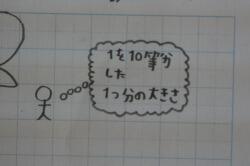 1を10等分
した
1つ分の大きさ